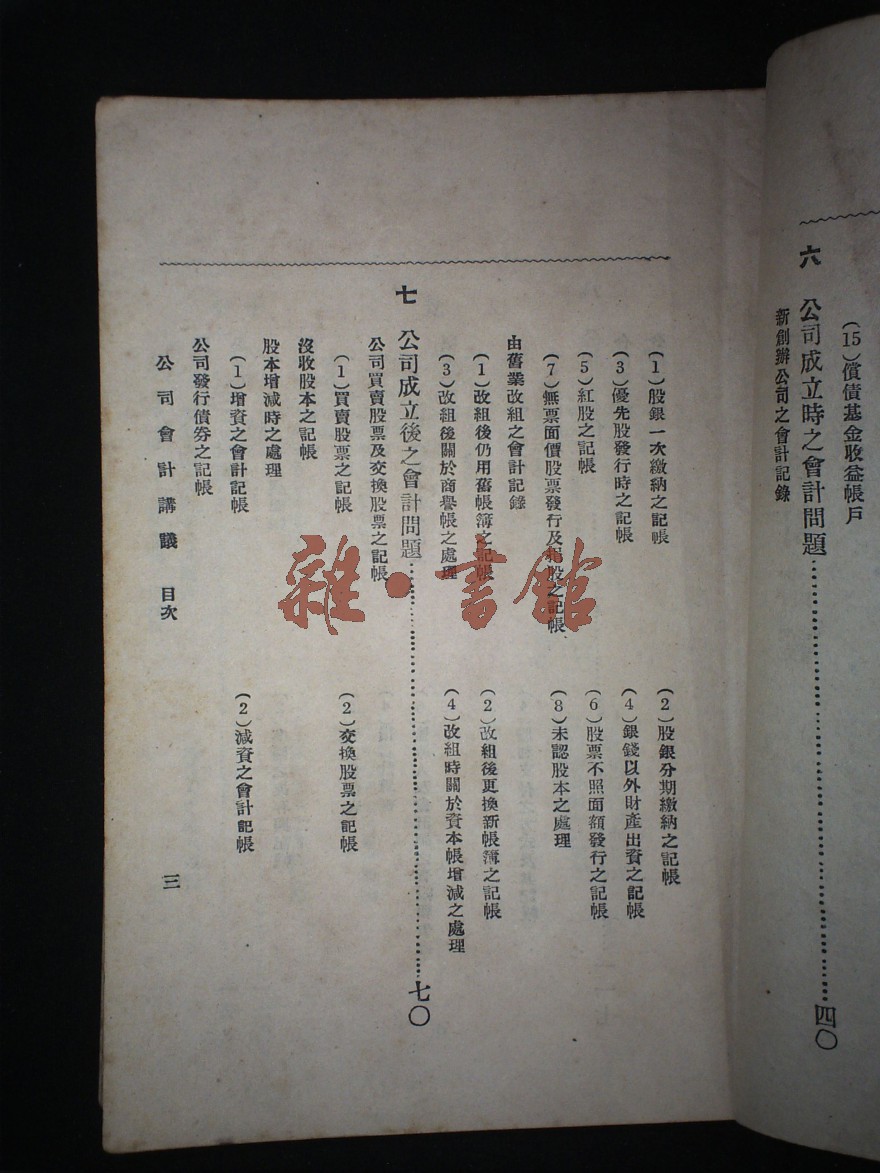 (15)償債基金收益帳戶
六 公司成立時之會計問題……四〇
新創辦公司之會計記錄
(1)股銀一次繳納之記帳 (2)股銀分期繳納之記帳
(3)優先股發行時之記帳 (4)銀錢以外財產出資之記帳
(5)紅股之記帳 (6)股票不照面額發行之記帳
(7)無票面價股票發行及捐股之記帳 (8)未認股本之處理
由舊業改組之會計記錄
(1)改組後仍用舊帳簿之記帳 (2)改組後更換新帳簿之記帳
(3)改組後關於商譽帳之處理 (4)改組時關於資本帳增減之處理
七 公司成立後之會計問題……七〇
公司買賣股票及交換股票之記帳
(1)買賣股票之記帳 (2)交換股票之記帳
沒收股本之記帳
股本增減時之處理
(1)增資之會計記帳 (2)減資之會計記帳
公司發行債券之記帳
公司會計講議 目次 三
雜·書館